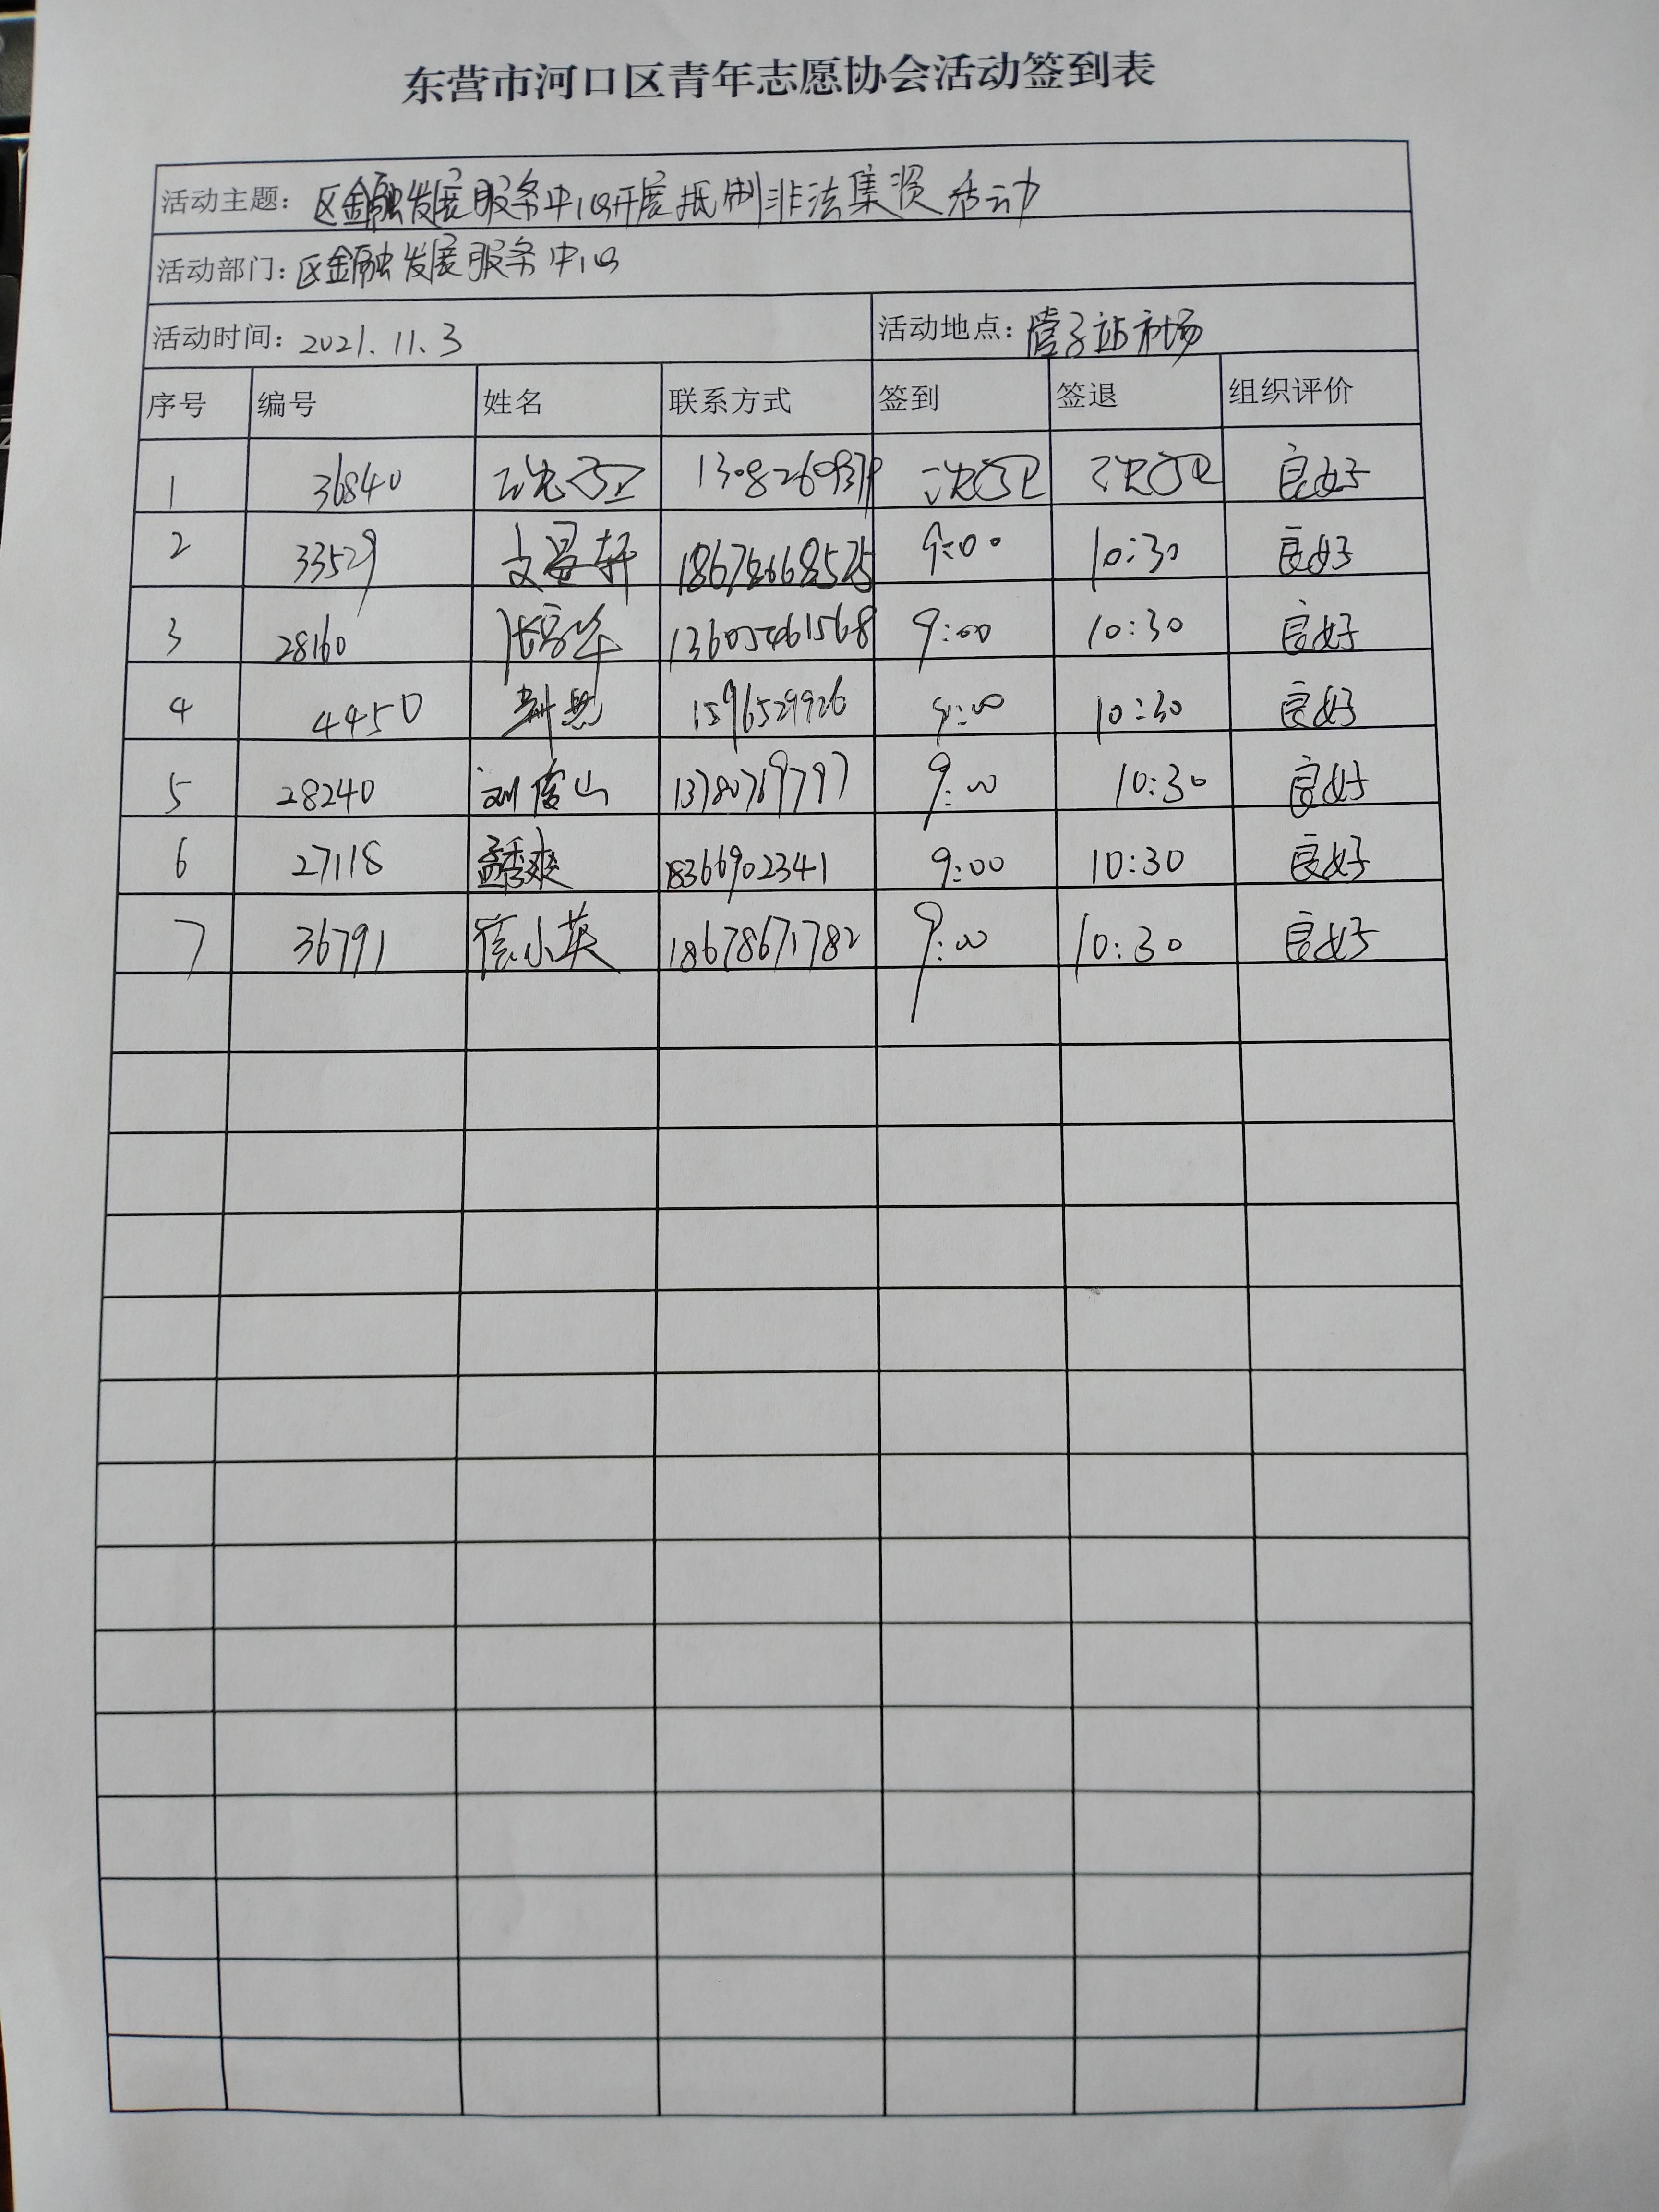 东营市河口区青年志愿协会活动签到表
活动主题：区金融发展服务中心开展抵制非法集资活动
活动部门：区金融发展服务中心
活动时间：2021.11.3 活动地点：站市场
序号 编号 姓名 联系方式 签到 签退 组织评价
1 36840 良好
2 33529 9:00 10:30 良好
3 28160 13605461568 9:00 10:30 良好
4 4450 1596529926 9:00 10:30 良好
5 28240 山 13780769797 9:00 10:30 良好
6 27118 孟秀爽 18366902341 9:00 10:30 良好
7 36791 小英 18678671782 9:00 10:30 良好